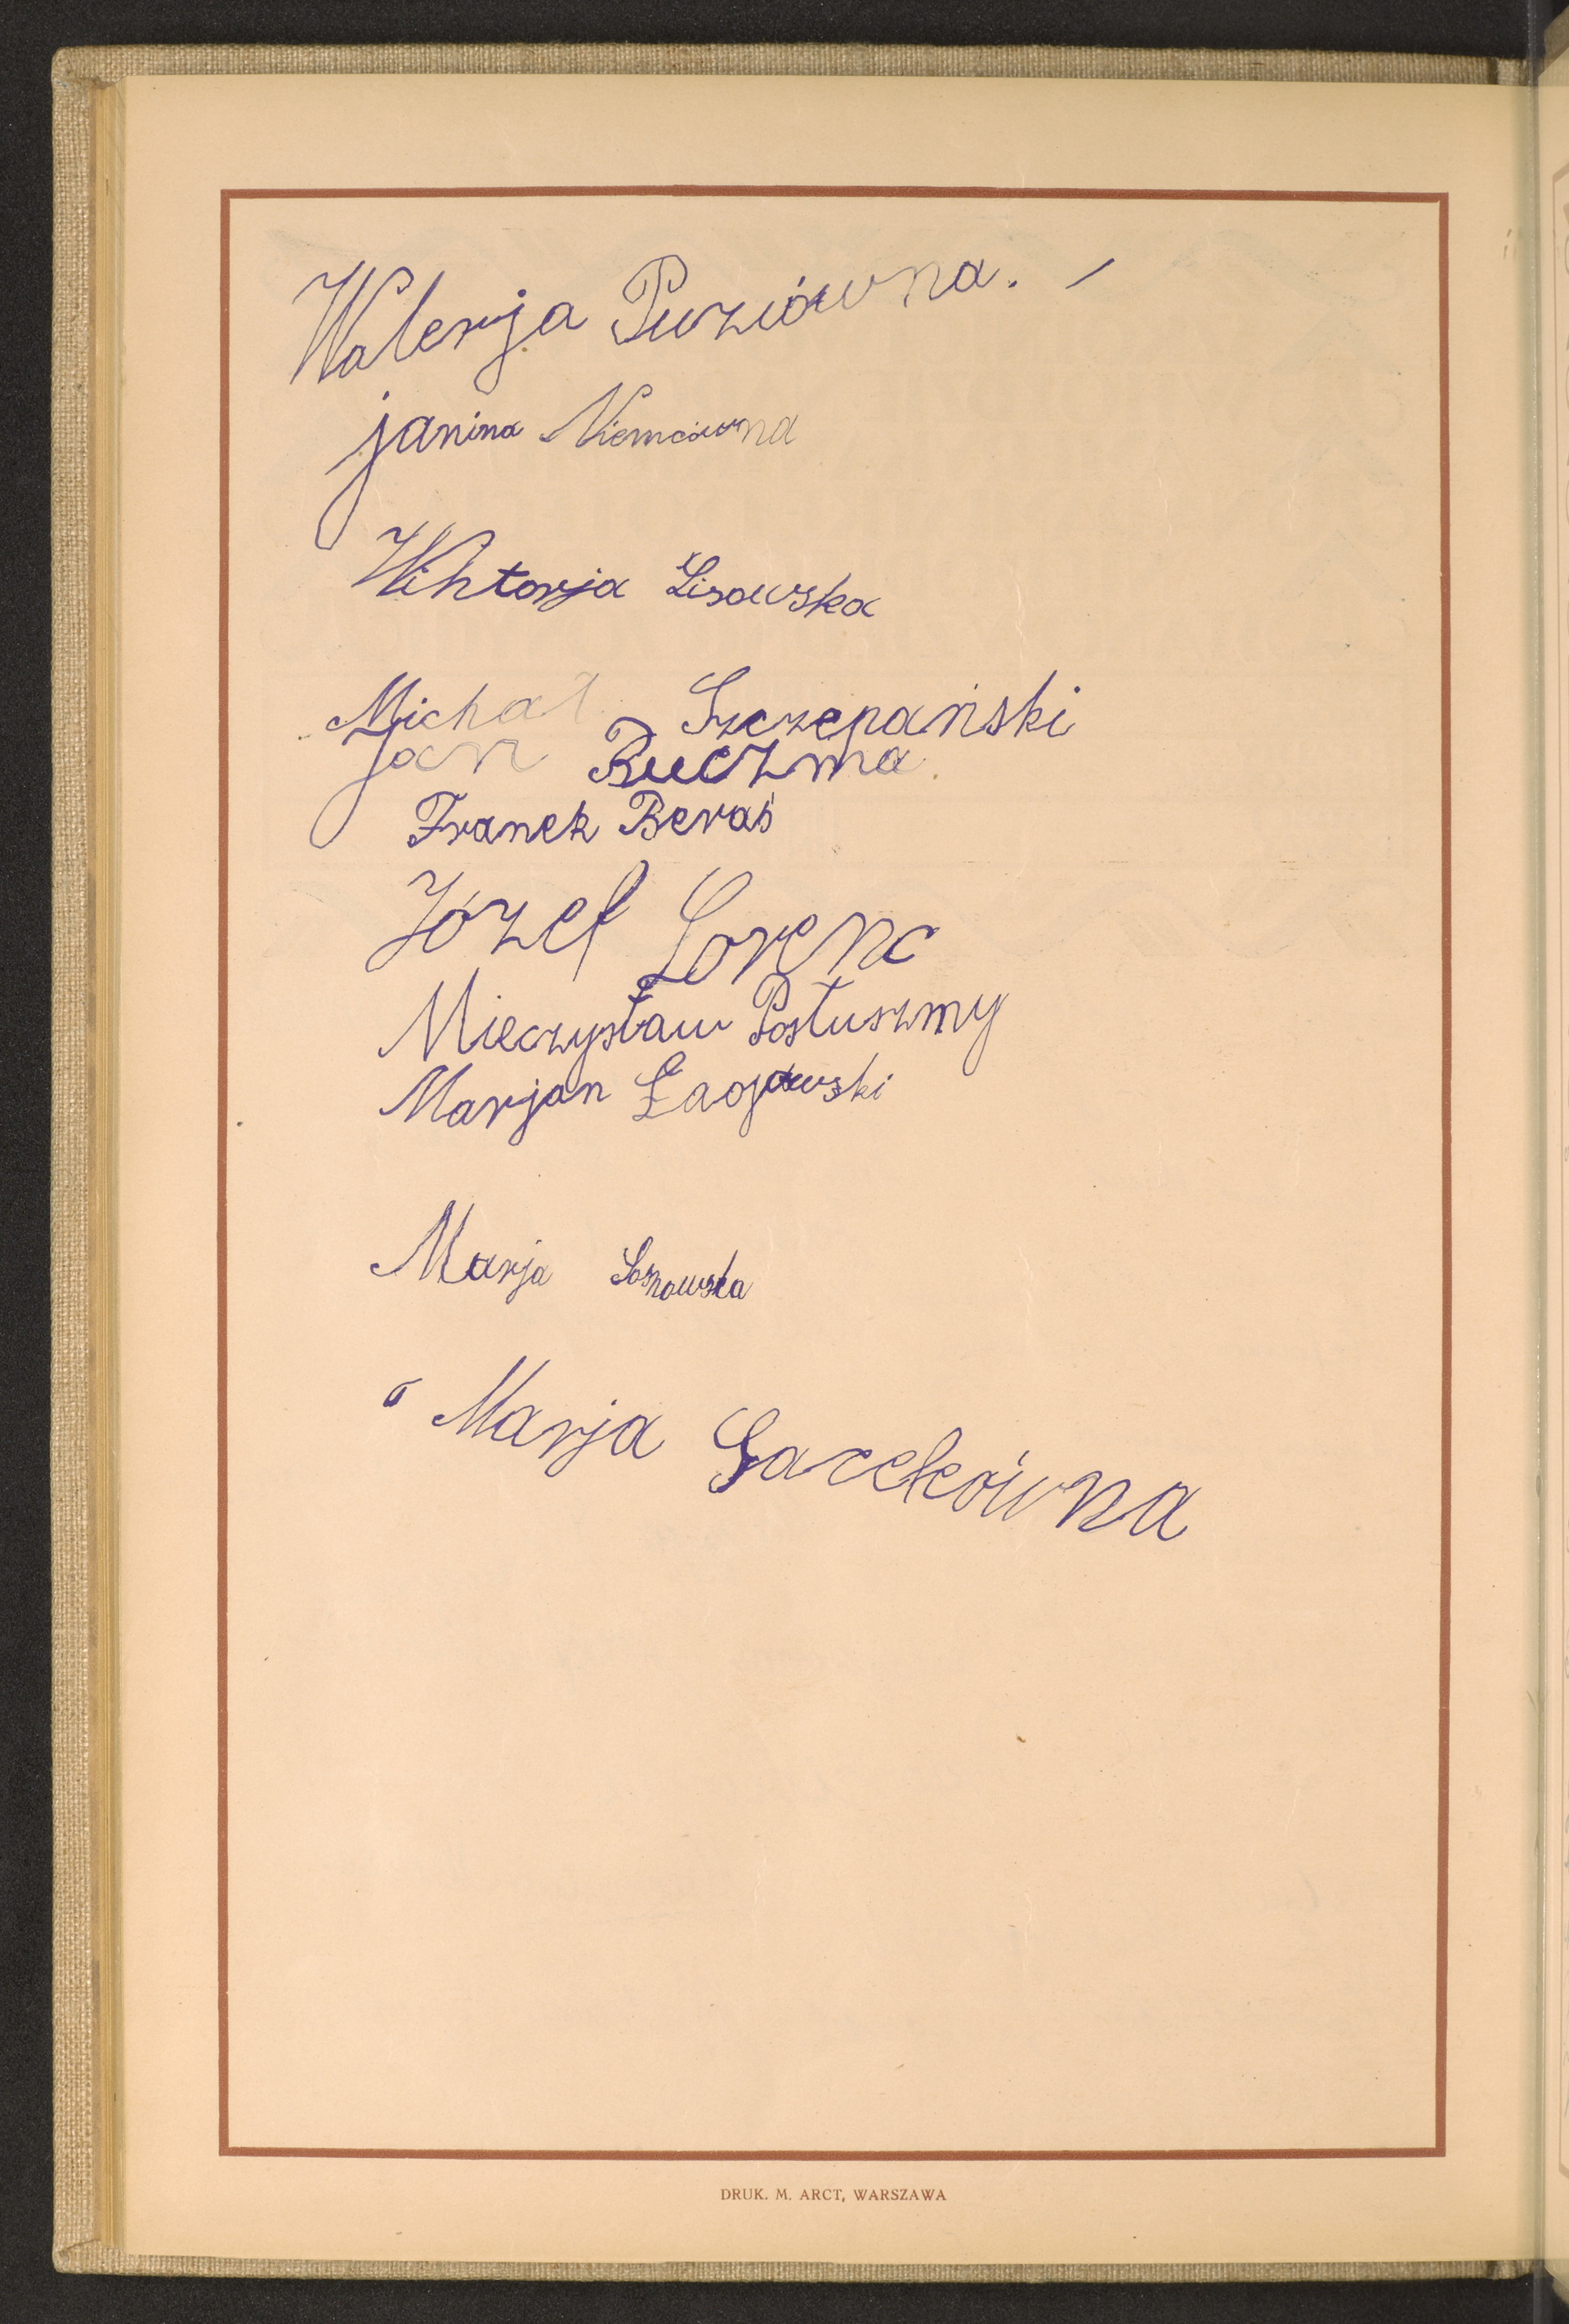 Walerja Puziówna. -
Janina Niemcówna
Wiktorja Lisowska
Michał Szczepański
Jan Buczma
Franek Beraś
Józef Lorenc
Mieczysław Postuszmy
Marjan
Marja Sosnowska
Marja Gacekówna
DRUK. M. ARCT, WARSZAWA